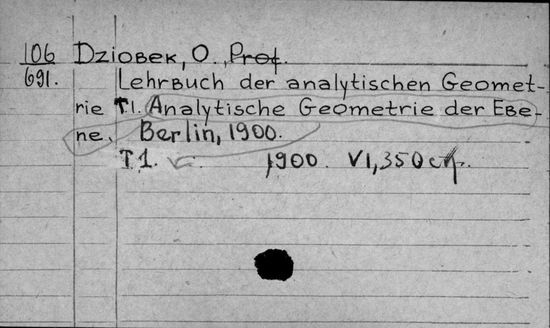 106 Dziobek, O., Prof.
691. Lehrbuch der analytischen Geomet-
rie T1. Analytische Geometrie der Ebe-
ne. Berlin, 1900.
T.1. 1900. VI, 350 стр.